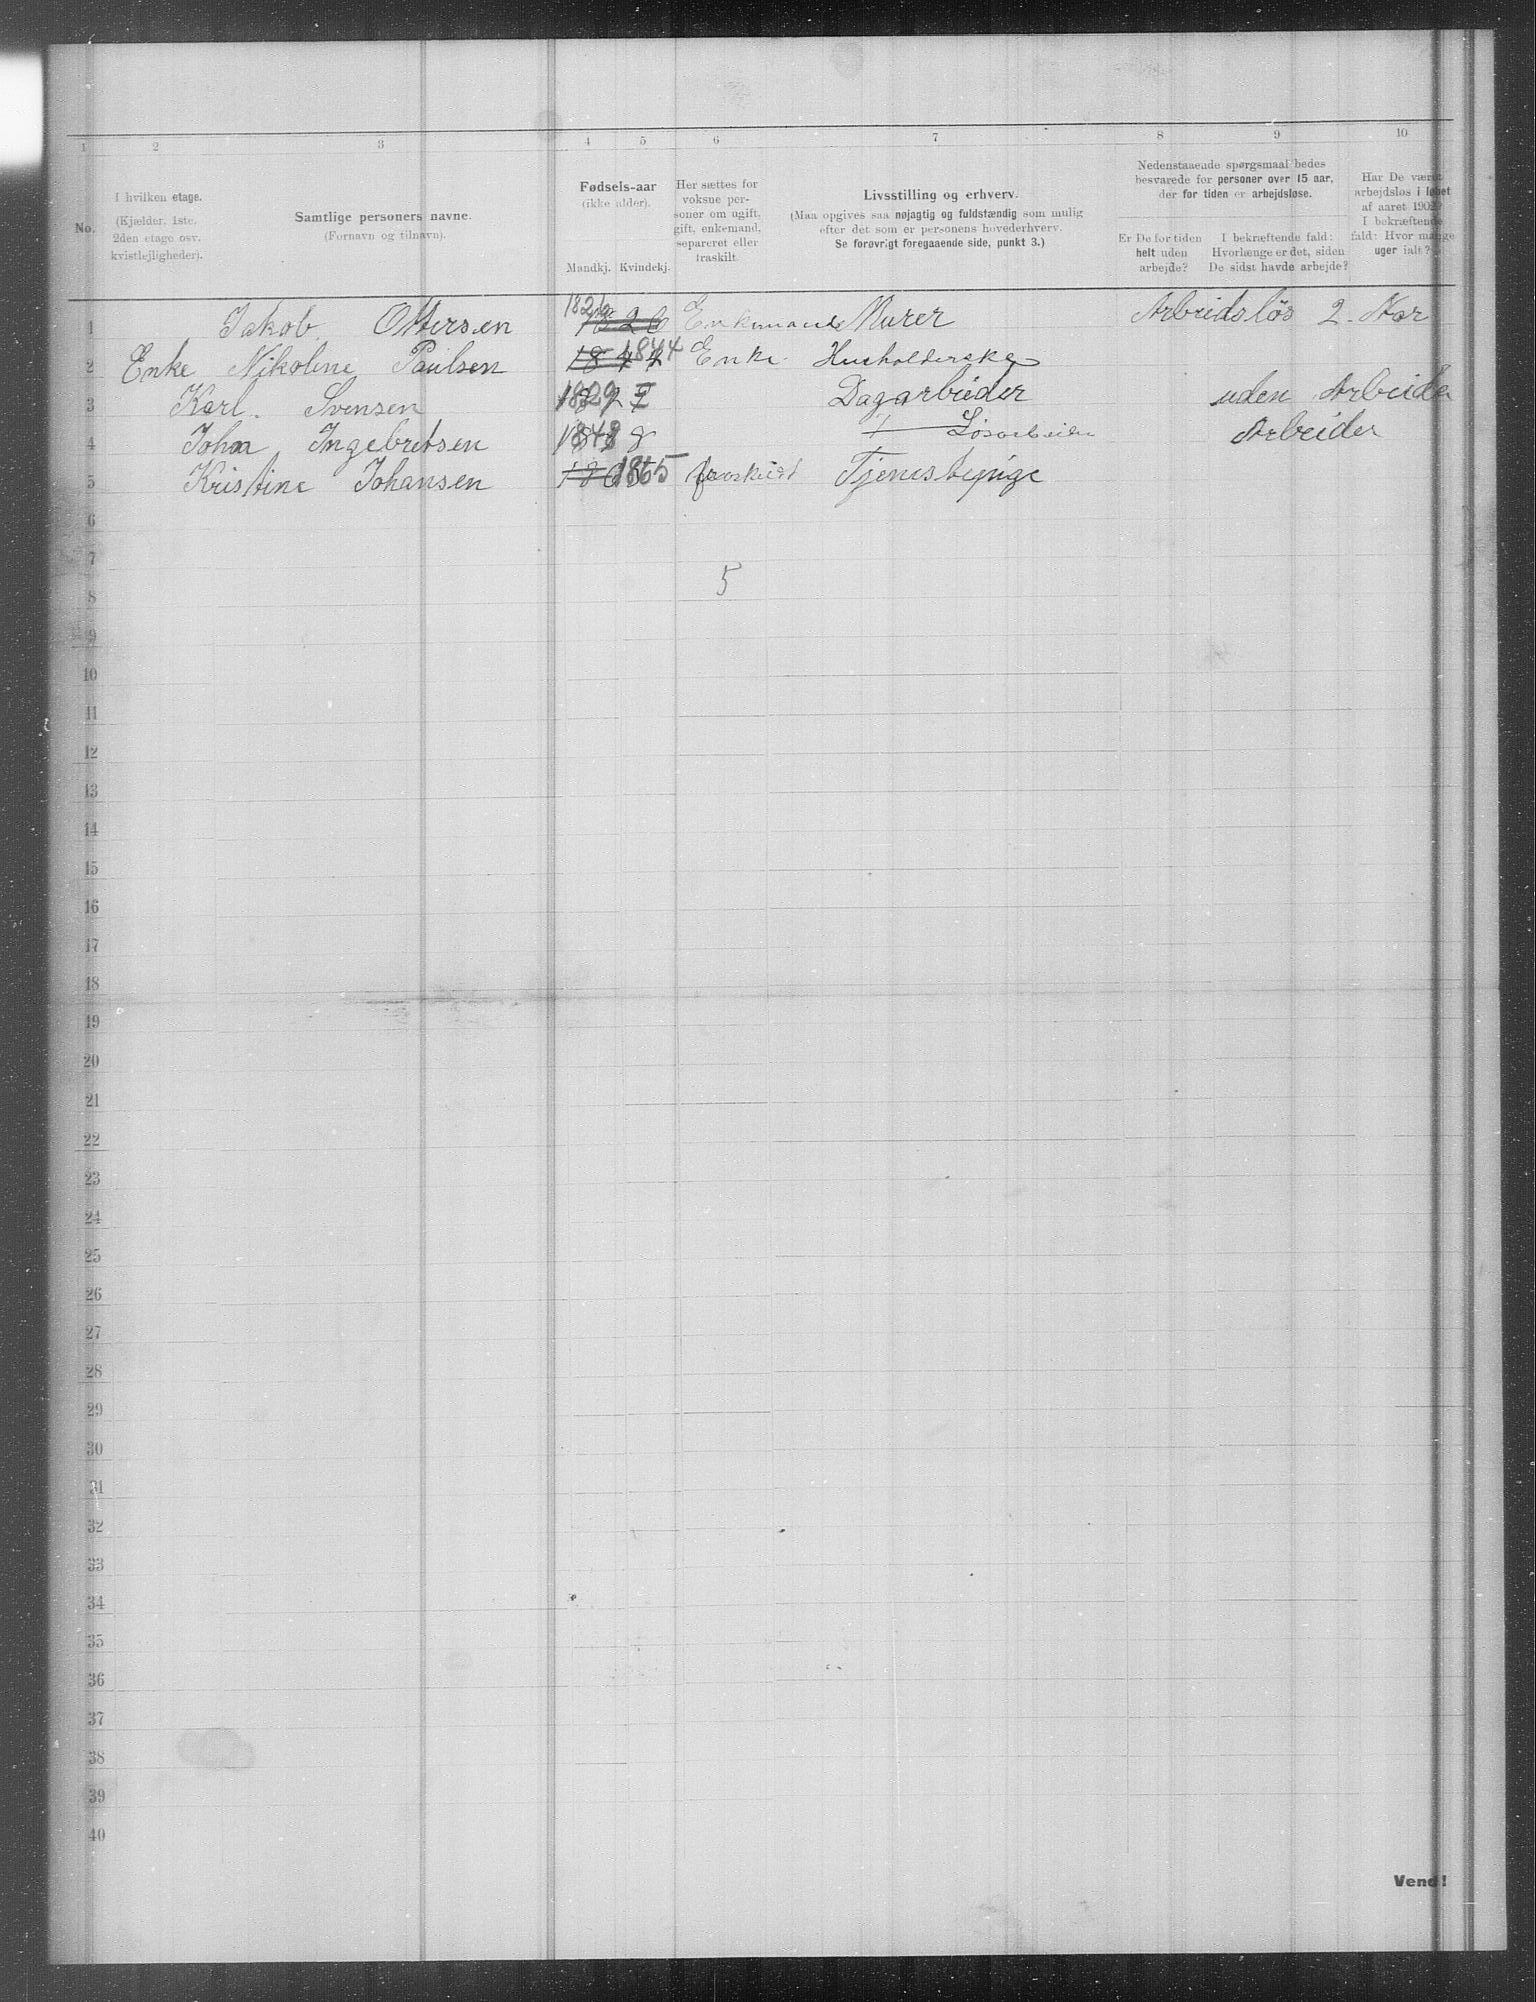 1 2 3 4 5 6 7 8 9 10
No.
I hvilken etage.
(Kjælder, 1ste, 2den etage osv. kvistlejligheder).
Samtlige personers navne.
(Fornavn og tilnavn).
Fødsels-aar
(ikke alder).
Mandkj. Kvindekj.
Her sættes for
voksne per-
soner om ugift,
gift, enkemand,
separeret eller
fraskilt.
Livsstilling og erhverv.
(Maa opgives saa nøjagtig og fuldstændig som mulig
efter det som er personens hovederhverv.
Se forøvrigt foregaaende side, punkt 3.)
Nedenstaaende spørgsmaal bedes
besvarede for personer over 15 aar,
der for tiden er arbejdsløse.
Er De for tiden
helt uden
arbejde?
I bekræftende fald:
Hvorlænge er det, siden
De sidst havde arbejde?
Har De været
arbejdsløs i løbet
af aaret 1902?
I bekræftende
fald: Hvor mange
uger ialt?
1 Jakob Ottersen 1826 Enkemand Murer Arbeidsløs 2. Aar
2 Enke Nikoline Paulsen 1844 Enke Husholderske
3 Karl. Svensen 1829 Dagarbeider uden Arbeide
4 Johan Ingebretsen 1848 Løsarbeider Arbeider
5 Kristine Johansen 1865 fraskildt Tjenestepige
6
7
5
8
9
10
11
12
13
14
15
16
17
18
19
20
21
22
23
24
25
26
27
28
29
30
31
32
33
34
35
36
37
38
39
40
Vend!